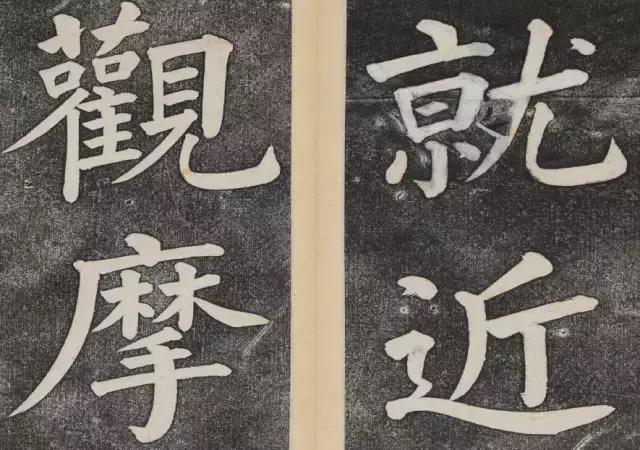 就近
觀摩